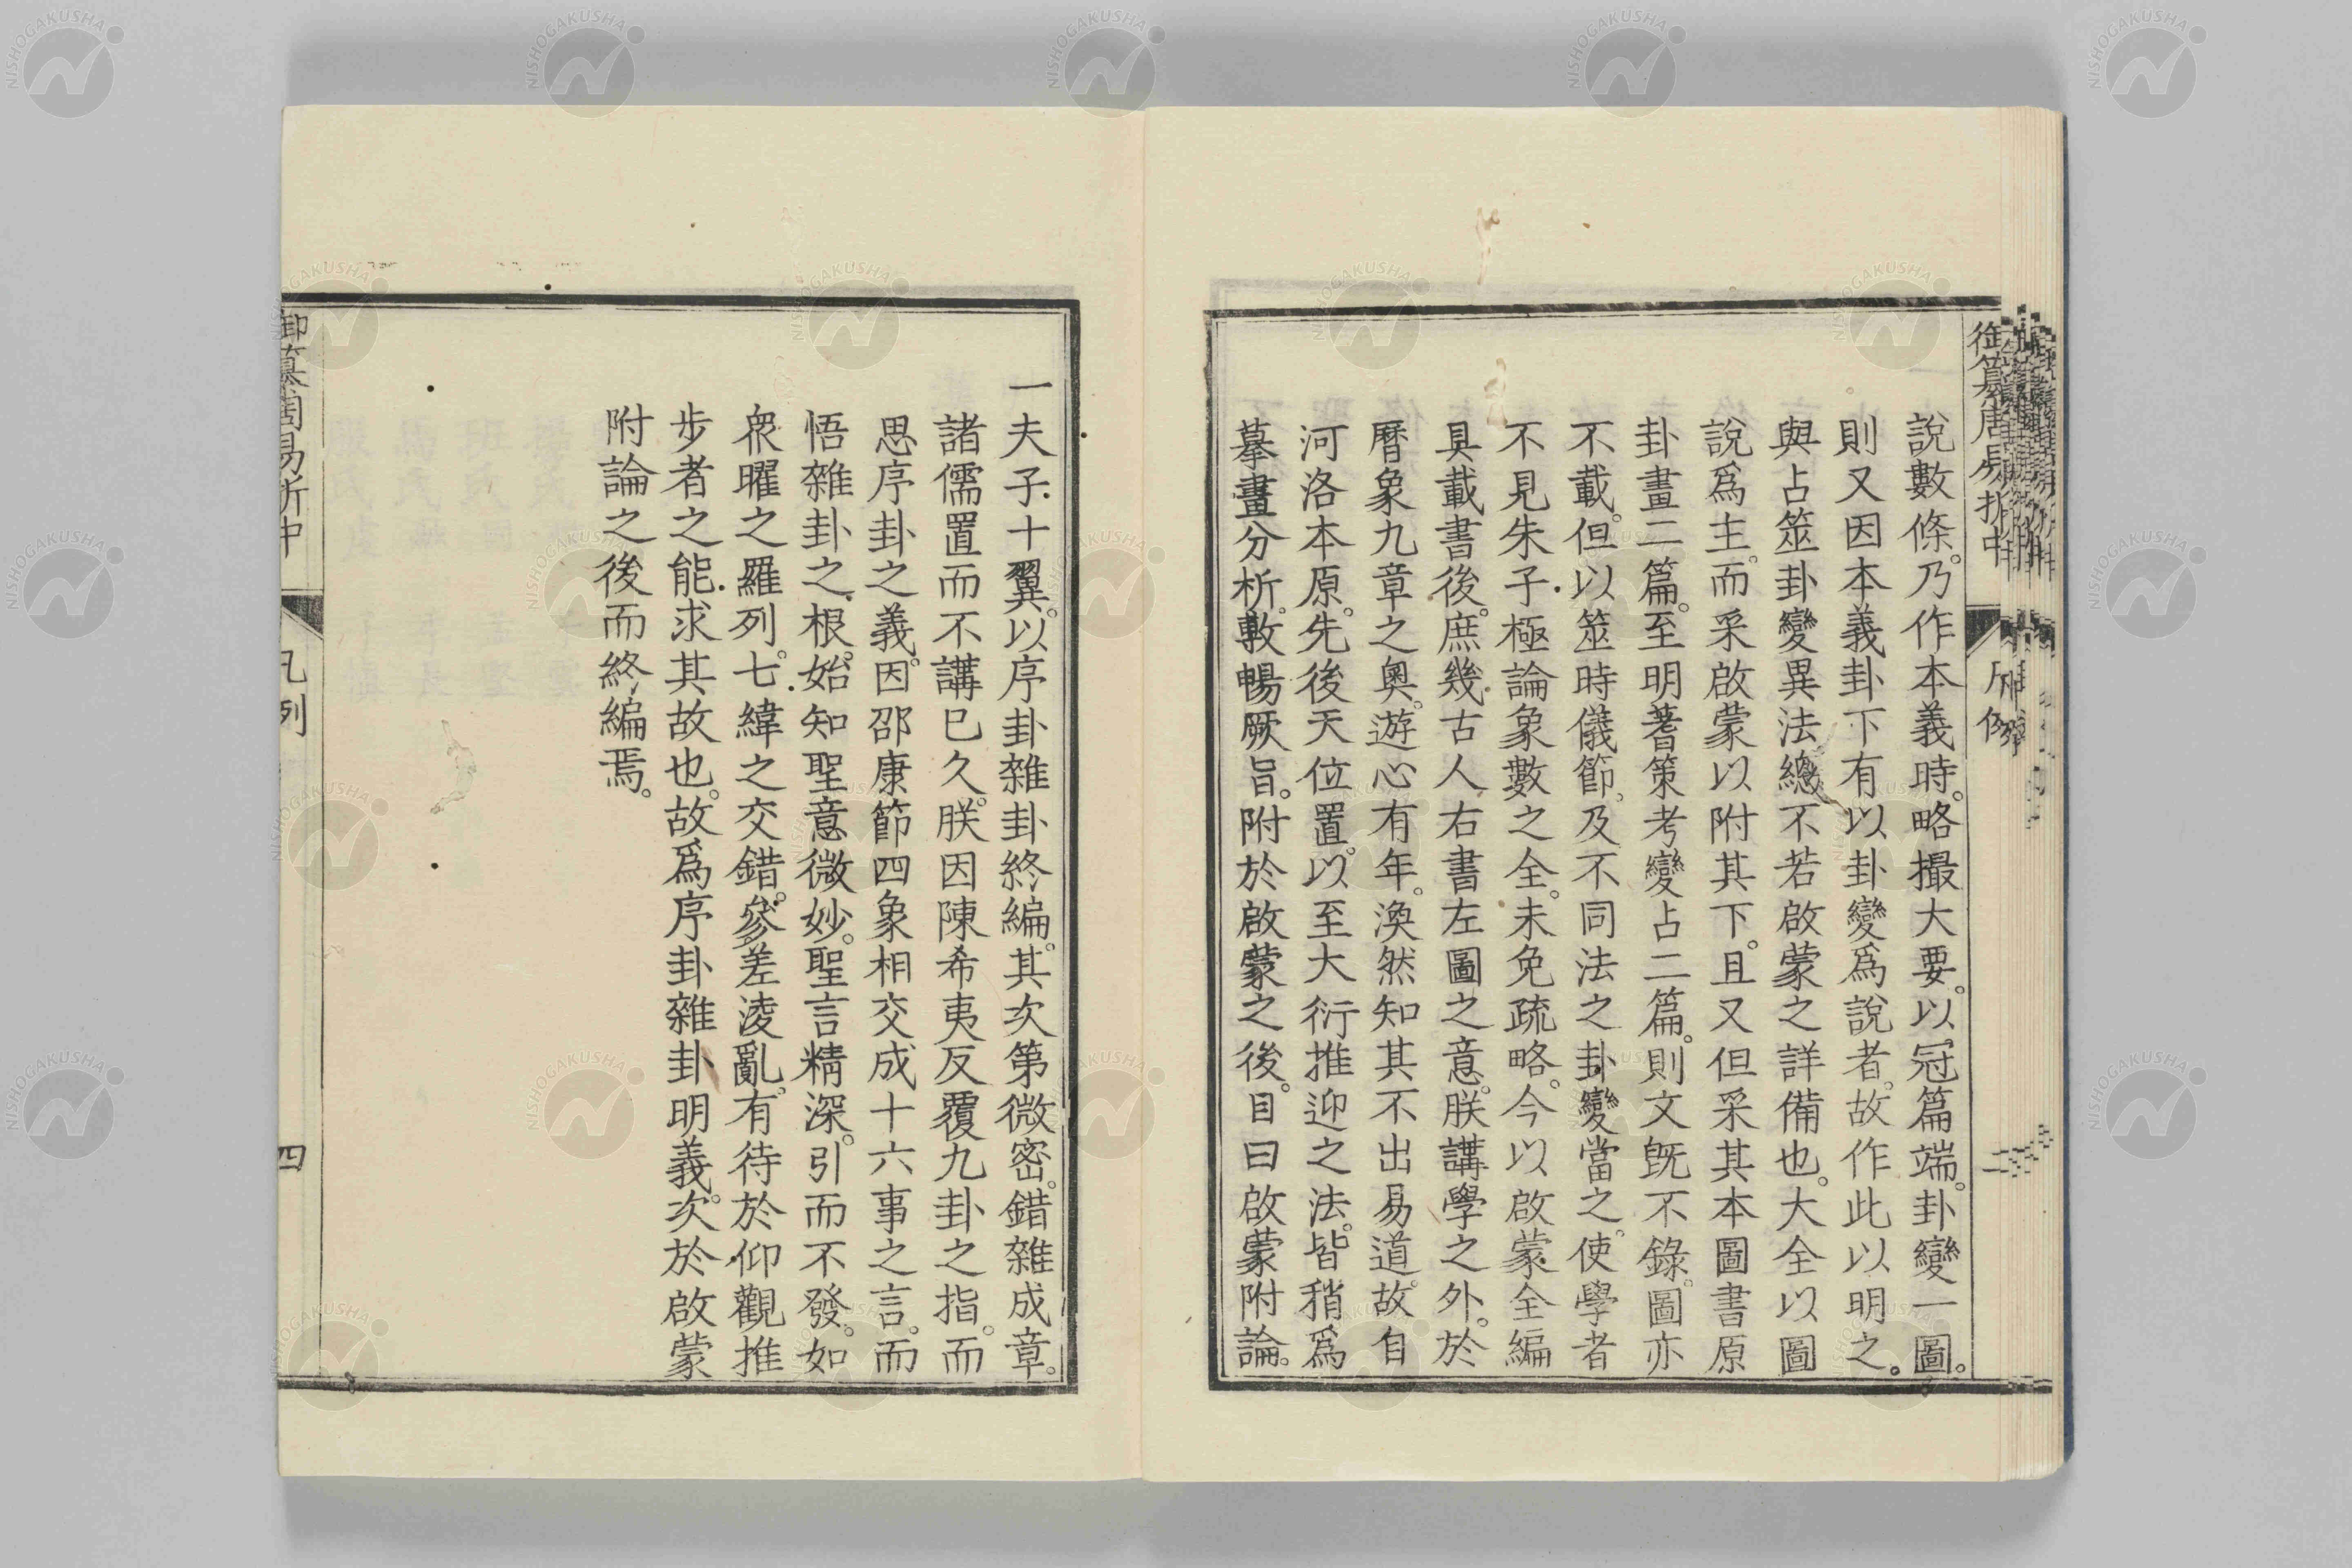 説數條。乃作本義時。略撮大要。以冠篇端。卦變一圖。
則又因本義卦下有以卦變爲說者。故作此以明之。
與占筮卦變異法總不若啟蒙之詳備也。大全以圖
說爲主。而采啟蒙以附其下。且又但采其本圖書原
卦畫二篇。至明蓍策考變占二篇。則文旣不錄。圖亦
不載。但以筮時儀節。及不同法之卦變當之。使學者
不見朱子極論象數之全。未免疏略。今以啟蒙全編
具載書後。庶幾古人右書左圖之意。朕講學之外。於
曆象九章之奧。遊心有年。渙然知其不出易道。故自
河洛本原。先後天位置。以至大衍推迎之法。皆稍爲
摹畫分析。敷暢厥旨。附於啟蒙之後。目曰啟蒙附論。
一夫子十翼。以序卦雜卦終編。其次第微密。錯雜成章。
諸儒置而不講已久。朕因陳希夷反覆九卦之指。而
思序卦之義。因邵康節四象相交成十六事之言。而
悟雜卦之根。始知聖意微妙。聖言精深。引而不發。如
衆曜之羅列。七緯之交錯。參差淩亂。有待於仰觀推
步者之能求其故也。故爲序卦雜卦明義。次於啟蒙
附論之後而終編焉。
御纂周易折中
凡例
四